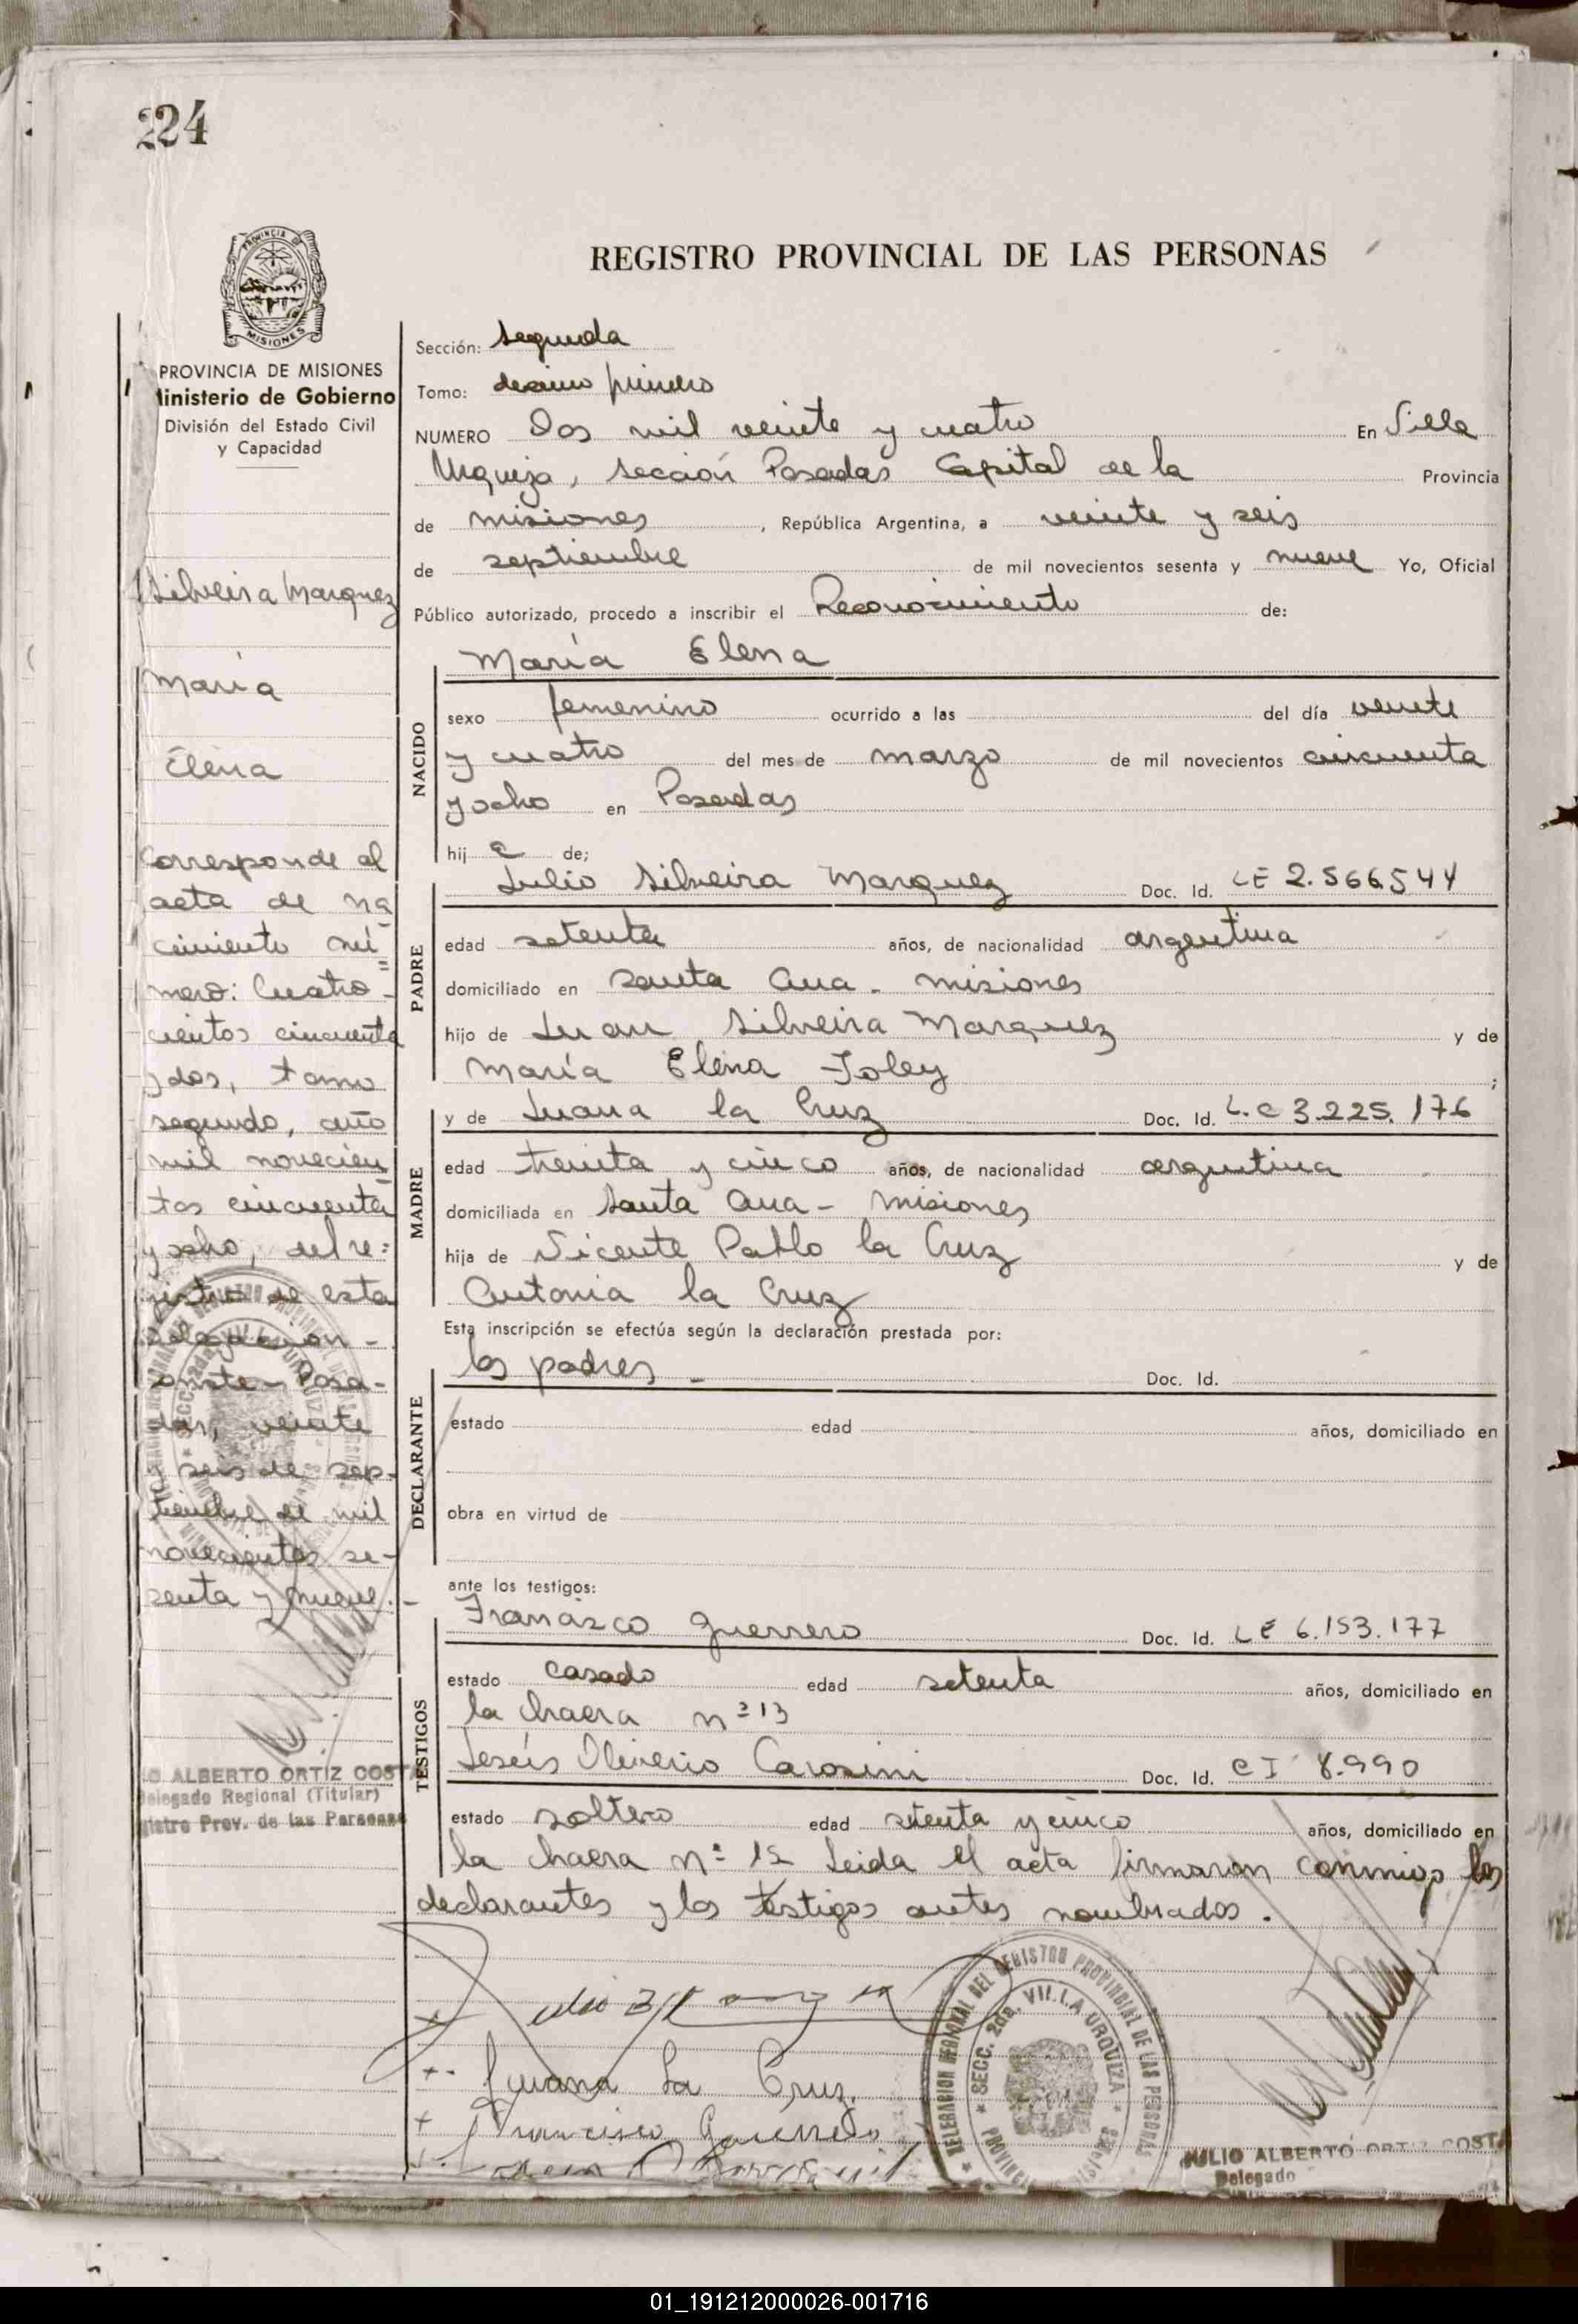 224
REGISTRO PROVINCIAL DE LAS PERSONAS
PROVINCIA DE MISIONES
PROVINCIA DE MISIONES
Ministerio de Gobierno
División del Estado Civil
y Capacidad
Silveira Marquez
María
Elena
Corresponde al
acta de na
cimiento nú=
mero: Cuatro-
cientos cincuenta
y dos, tomo
segundo, año
mil novecien
tos cincuenta
y ocho, del re=
gistro de esta
delegación -
Posa-
das, veinte
y seis de sep-
tiembre de mil
novecientos se-
senta y nueve.-
ALBERTO ORTIZ COSTA
Delegado Regional (Titular)
Prov. de las Personas
Sección: Segunda
Tomo: decimo primero
NUMERO Dos mil veinte y cuatro En Villa
Urquiza, sección Posadas Capital de la Provincia
de misiones, República Argentina, a veinte y seis
de septiembre de mil novecientos sesenta y nueve Yo, Oficial
Público autorizado, procedo a inscribir el Reconocimiento de:
María Elena
NACIDO
sexo femenino ocurrido a las del día veinte
y cuatro del mes de marzo de mil novecientos cincuenta
y ocho en Posadas
hij a de;
PADRE
Julio Silveira Marquez Doc. Id. LE 2.566.544
edad setenta años, de nacionalidad argentina
domiciliado en Santa Ana - misiones
hijo de Juan Silveira Marquez y de
María Elena Joley ;
MADRE
y de Juana la Cruz Doc. Id. L.C 3.225.176
edad treinta y cinco años, de nacionalidad argentina
domiciliada en Santa Ana - misiones
hija de Vicente Pablo la Cruz y de
Antonia la Cruz
Esta inscripción se efectúa según la declaración prestada por:
DECLARANTE
los padres - Doc. Id.
estado edad años, domiciliado en
obra en virtud de
ante los testigos:
TESTIGOS
Francisco Guerrero Doc. Id. LE 6.153.177
estado casado edad setenta años, domiciliado en
la chacra nº 13
Jesús Oliverio Carosini Doc. Id. CI 8.990
estado soltero edad setenta y cinco años, domiciliado en
la chacra nº 12 Leida el acta firmaron conmigo los
declarantes y los testigos antes nombrados.
Juana La Cruz
Francisco Guerrero
DELEGACION REGIONAL DEL REGISTRO PROVINCIAL DE LAS PERSONAS
SECC. 2da. VILLA URQUIZA
JULIO ALBERTO ORTIZ COSTA
Delegado
01_191212000026-001716